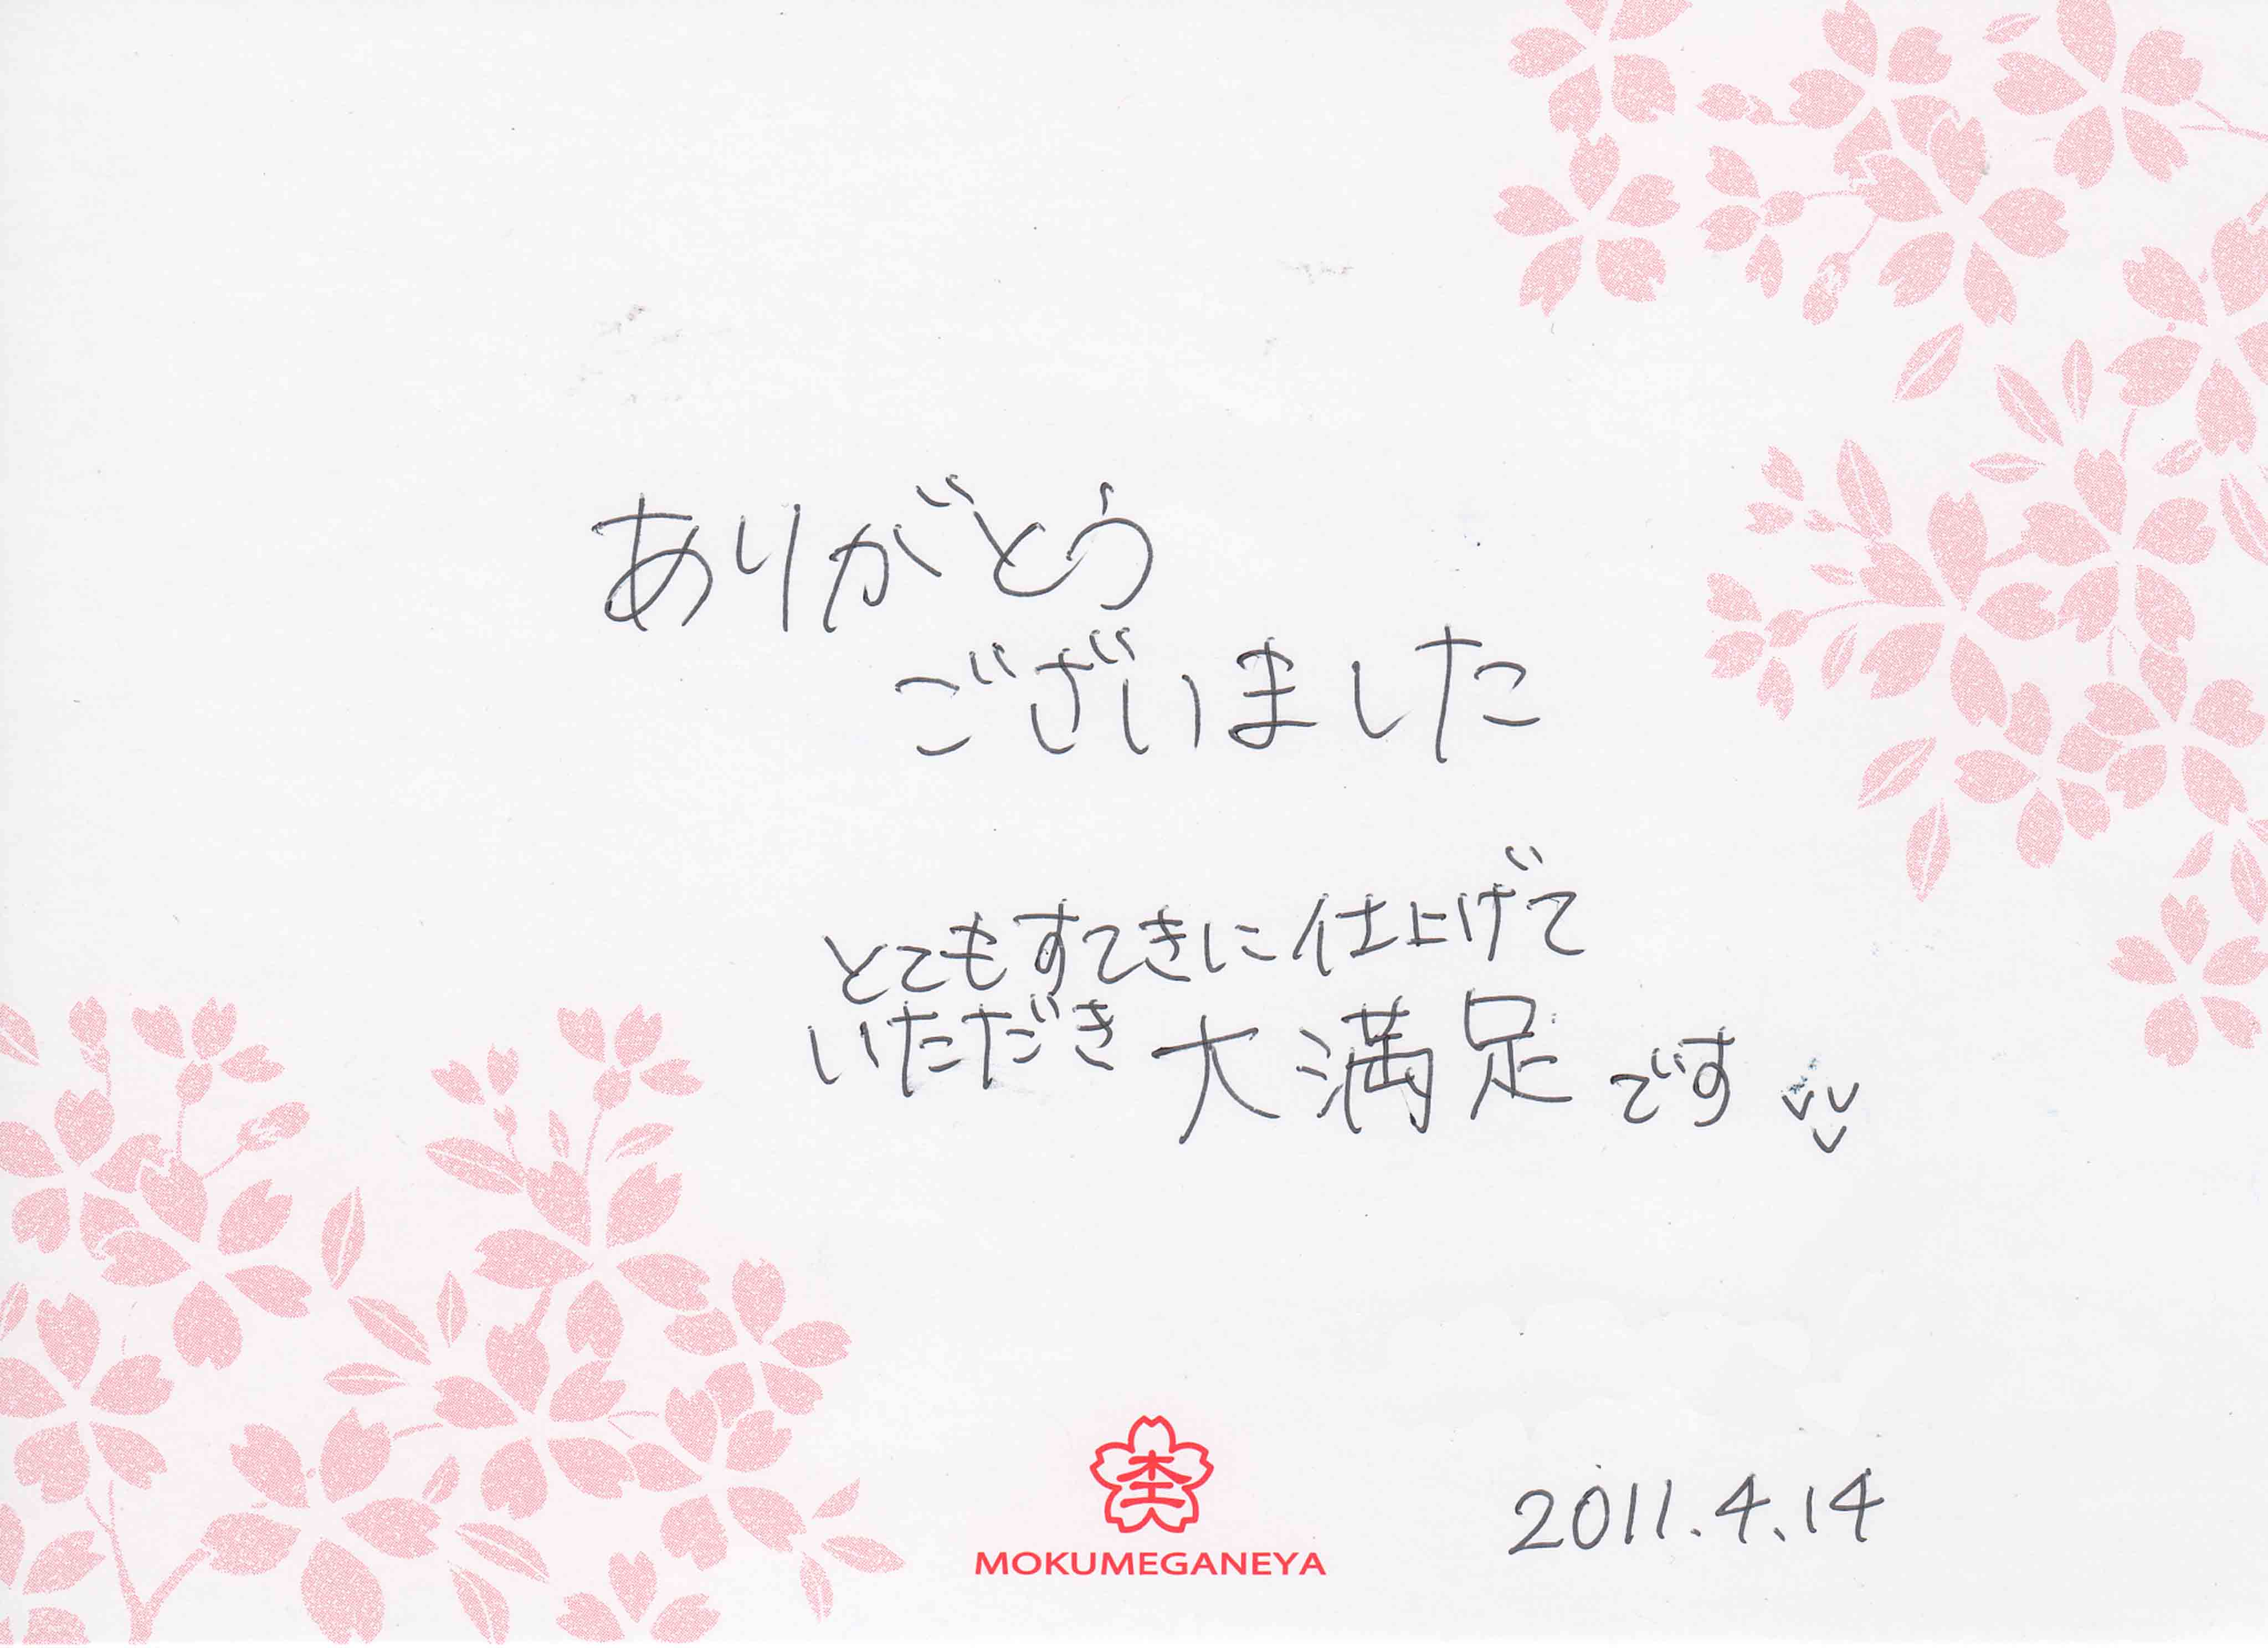 ありがとう
ございました
とてもすてきに仕上げて
いただき大満足です
MOKUMEGANEYA
2011.4.14